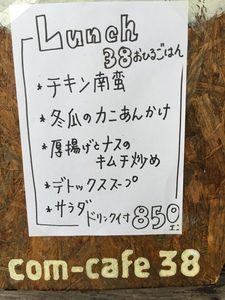 Lunch
38おひるごはん
*チキン南蛮
*冬瓜のカニあんかけ
*厚揚げとナスの
キムチ炒め
*デトックススープ
*サラダ
ドリンク付 850エン
com-cafe 38